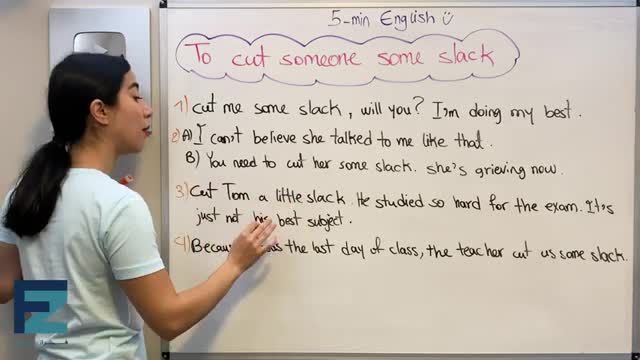 5-min English
To cut someone some slack
1) Cut me some slack, will you? I'm doing my best.
2) A) I can't believe she talked to me like that.
B) You need to cut her some slack. She's grieving now.
3) Cut Tom a little slack. He studied so hard for the exam. It's
just not his best subject.
4) the last day of class, the teacher cut us some slack.
FZ